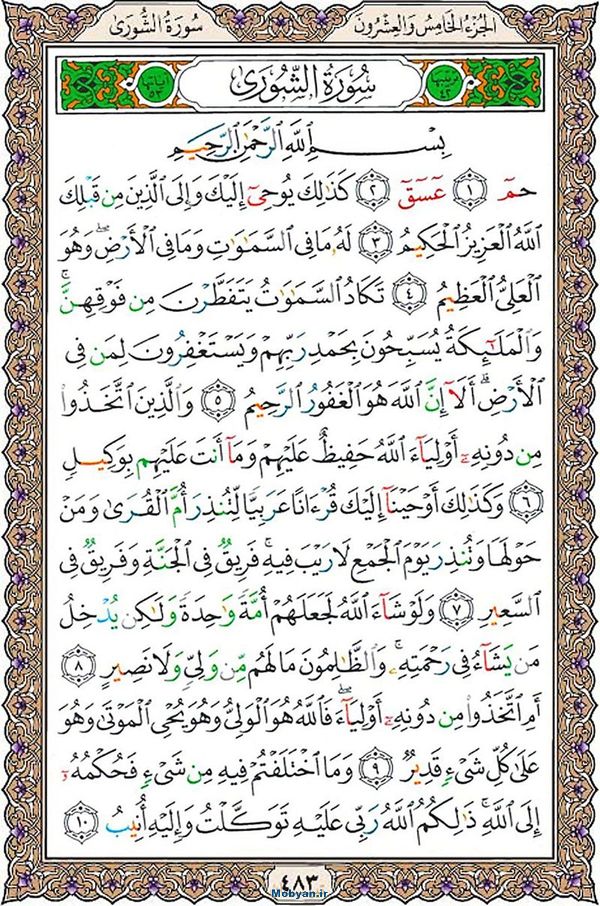 سُورَةُ الشُّورَىٰ
الجُزْءُ الخَامِسُ وَالعِشْرُونَ
آياتها ٥٣
سُورَةُ الشُّورَىٰ
ترتيبها ٤٢
بِسْمِ ٱللَّهِ ٱلرَّحْمَٰنِ ٱلرَّحِيمِ
حمٓ ١ عٓسٓقٓ ٢ كَذَٰلِكَ يُوحِىٓ إِلَيْكَ وَإِلَى ٱلَّذِينَ مِن قَبْلِكَ
ٱللَّهُ ٱلْعَزِيزُ ٱلْحَكِيمُ ٣ لَهُۥ مَا فِى ٱلسَّمَٰوَٰتِ وَمَا فِى ٱلْأَرْضِ ۖ وَهُوَ
ٱلْعَلِىُّ ٱلْعَظِيمُ ٤ تَكَادُ ٱلسَّمَٰوَٰتُ يَتَفَطَّرْنَ مِن فَوْقِهِنَّ ۚ
وَٱلْمَلَٰٓئِكَةُ يُسَبِّحُونَ بِحَمْدِ رَبِّهِمْ وَيَسْتَغْفِرُونَ لِمَن فِى
ٱلْأَرْضِ ۗ أَلَآ إِنَّ ٱللَّهَ هُوَ ٱلْغَفُورُ ٱلرَّحِيمُ ٥ وَٱلَّذِينَ ٱتَّخَذُوا۟
مِن دُونِهِۦٓ أَوْلِيَآءَ ٱللَّهُ حَفِيظٌ عَلَيْهِمْ وَمَآ أَنتَ عَلَيْهِم بِوَكِيلٍ
٦ وَكَذَٰلِكَ أَوْحَيْنَآ إِلَيْكَ قُرْءَانًا عَرَبِيًّا لِّتُنذِرَ أُمَّ ٱلْقُرَىٰ وَمَنْ
حَوْلَهَا وَتُنذِرَ يَوْمَ ٱلْجَمْعِ لَا رَيْبَ فِيهِ ۚ فَرِيقٌ فِى ٱلْجَنَّةِ وَفَرِيقٌ فِى
ٱلسَّعِيرِ ٧ وَلَوْ شَآءَ ٱللَّهُ لَجَعَلَهُمْ أُمَّةً وَٰحِدَةً وَلَٰكِن يُدْخِلُ
مَن يَشَآءُ فِى رَحْمَتِهِۦ ۚ وَٱلظَّٰلِمُونَ مَا لَهُم مِّن وَلِىٍّ وَلَا نَصِيرٍ ٨
أَمِ ٱتَّخَذُوا۟ مِن دُونِهِۦٓ أَوْلِيَآءَ ۖ فَٱللَّهُ هُوَ ٱلْوَلِىُّ وَهُوَ يُحْىِ ٱلْمَوْتَىٰ وَهُوَ
عَلَىٰ كُلِّ شَىْءٍ قَدِيرٌ ٩ وَمَا ٱخْتَلَفْتُمْ فِيهِ مِن شَىْءٍ فَحُكْمُهُۥٓ
إِلَى ٱللَّهِ ۚ ذَٰلِكُمُ ٱللَّهُ رَبِّى عَلَيْهِ تَوَكَّلْتُ وَإِلَيْهِ أُنِيبُ ١٠
٤٨٣
Mobyan.ir